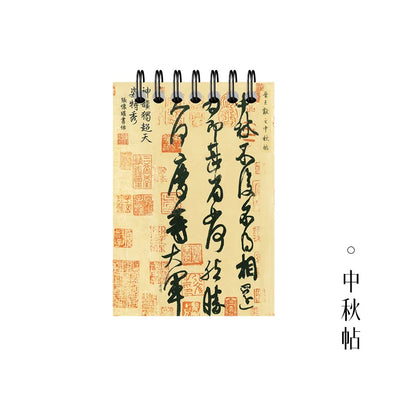 晉王獻之中秋帖
中秋不復不得相還
為即甚省如何然勝
人何慶等大軍
神韻獨超天
姿特秀
中秋帖